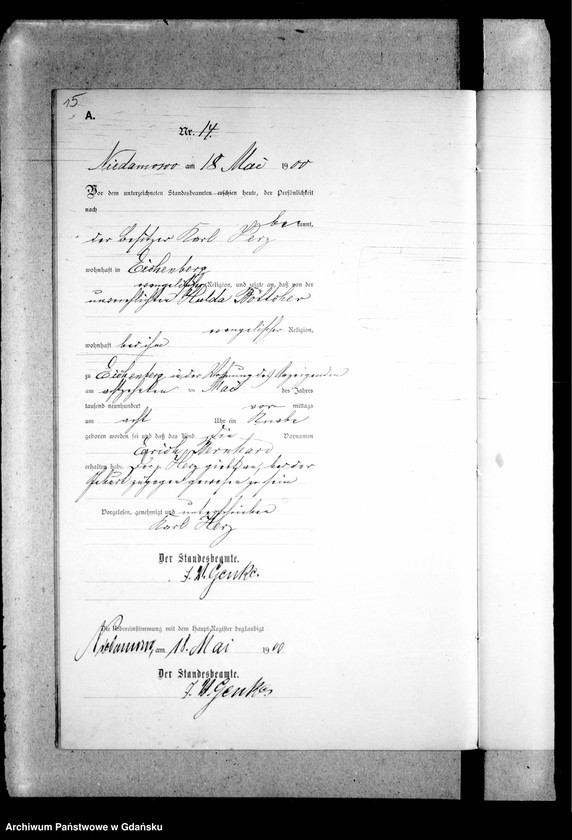 15
A.
Nr. 14.
Niedamowo am 18 Mai 1900
Vor dem unterzeichneten Standesbeamten erschien heute, der Persönlichkeit
nach
bekannt,
der Besitzer Karl Herz
wohnhaft in Eichenberg
evangelischer Religion, und zeigte an, daß von der
unverehelichten Hulda Böttcher
evangelischer Religion,
wohnhaft bei ihm
zu Eichenberg in der Wohnung des Anzeigenden
am achtzehnten ten Mai des Jahres
tausend neunhundert vor mittags
um acht Uhr ein Knabe
geboren worden sei und daß das Kind die Vornamen
Erich Bernhard
erhalten habe. Herz giebt an, bei der
Geburt zugegen gewesen zu sein
Vorgelesen, genehmigt und unterschrieben
Karl Herz
Der Standesbeamte.
Genke.
Die Uebereinstimmung mit dem Haupt-Register beglaubigt
Niedamowo, am 18. Mai 1900
Der Standesbeamte.
Genke
Archiwum Państwowe w Gdańsku